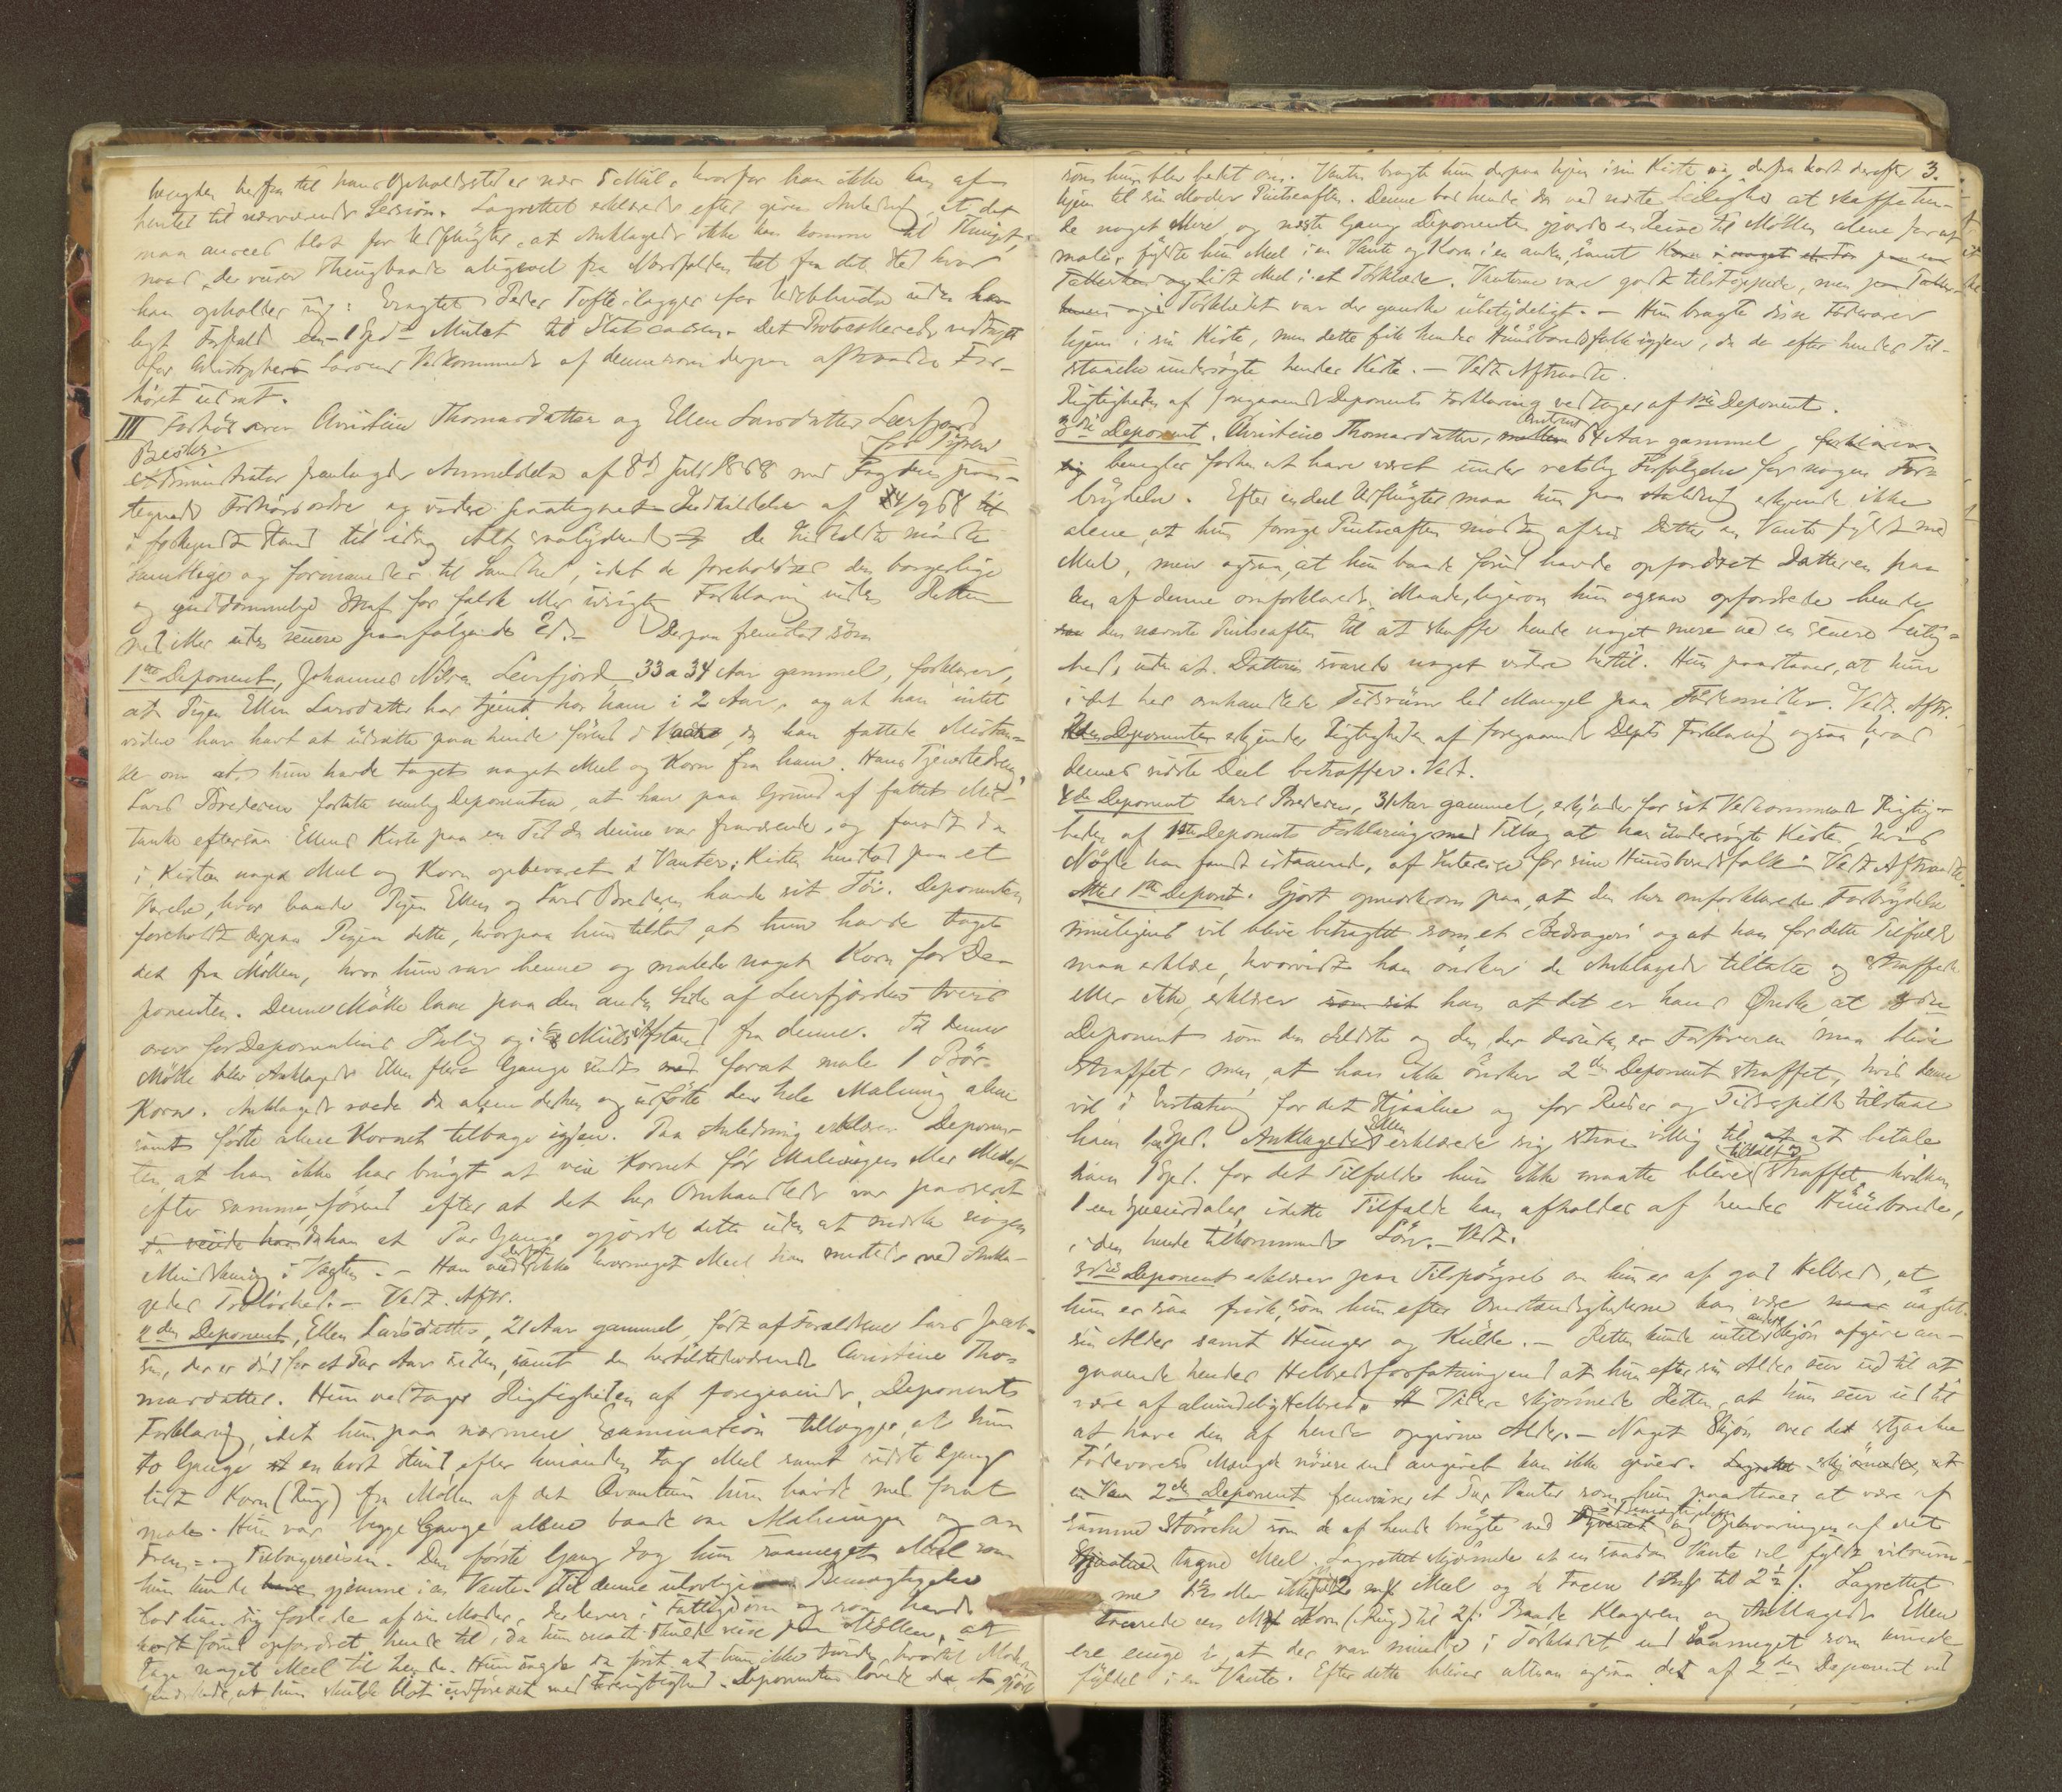 herfra til hans Opholdssted er nær 5 Mil, hvorfor han ikke kan af-
hentes til nærværende Session. Lagrettet erklærede efter given Anledning, at det
maa ansees blot for Udflugter, at Anklagede ikke kan komme til Thinget,
han opholder sig: Eragtet: Peder Tofte ilægges for Udeblivelse uden
lagt Forfald en 1 Spd Mulct til Statscassen. Det Protocollerede vedtoges
Larsens Vedkommende af denne som derpaa aftraadte For-
høret
III Forhør over Christine Thomasdatter og Ellen Larsdatter Leerfjord
for Tyveri
Administrator fremlagde Anmeldelse af 8de Juli 1868 med Fogdens paa-
tegnede Forhørsordre og videre paategnet Indkaldelse af 4/9 68
i forkyndt Stand til idag Alt saalydende De Indkaldte mødte
samtlige og formanedes til Sandhed, idet de foreholdtes den borgerlige
og guddommelige Straf for falsk eller urigtig Forklaring under Retten
med eller uden senere paafølgende Ed. Derpaa fremstod som
1ste Deponent, Johannes Nilsen Leerfjord 33 a 34 Aar gammel, forklarer,
at Pigen Ellen Larsdatter har tjent hos ham i 2 Aar, og at han intet
videre har havt at udsætte paa hende førend i Vaares, da han fattede Mistan-
ke om at hun havde taget noget Meel og Korn fra ham. Hans Tjenestedreng,
Lars Bredesen fortalte nemlig Deponenten, at han paa Grund af fattet Mis-
tanke eftersaa Ellens Kiste paa en Tid da denne var fraværende, og fandt da
i Kisten noget Meel og Korn opbevaret i Vanter; Kisten henstod paa et
Værelse, hvor baade Pigen Ellen og Lars Bredesen havde sit Tøi. Deponenten
foreholdt derpaa Pigen dette, hvorpaa hun tilstod, at hun havde taget
det fra Møllen, hvor hun var henne og malede noget Korn for De-
ponenten. Denne Mølle laae paa den anden Side af Leerfjorden tvers
over for Deponentens Bolig og i ½ Miils Afstand fra denne. Til denne
Mølle blev Anklagede Ellen flere Gange sendt med forat male 1 Bør
Korn. Anklagede roede da alene derhen og udførte den hele Maling alene
samt førte alene Kornet tilbage igjen. Paa Anledning erklærer Deponen-
ten, at han ikke har brugt at veie Kornet før Malingen eller Melet
efter samme, førend efter at det her Omhandlede var passeret
da han et Par Gange gjorde dette uden at mærke nogen
Mindskning i Vægten. – Han veed ikke hvormeget Meel han mistede ved Ankla-
gedes Troløshed. – Vedt. Aftr.
2den Deponent, Ellen Larsdatter, 21 Aar gammel, født af Forældrene Lars Jacob-
sen, der er død for et Par Aar siden, samt den hertilstedeværende Christine Tho-
masdatter. Hun vedtager Rigtigheden af foregaaende Deponents
Forklaring, idet hun paa nærmere Examination tillægger, at hun
to Gange en kort Stund efter hinanden tog Meel samt sidste Gang
lidt Korn (Rug) fra Møllen af det Qvantum hun havde med forat
male. Hun var begge Gange alene baade om Malingen og om
Frem- og Tilbagereisen. Den første Gang tog hun saameget Meel som
hun kunde gjemme i en Vante. Til denne ulovlige Bemægtigelse
lod hun sig forlede af sin Moder, der lever i Fattigdom og som havde
kort forud opfordret hende til, da hun snart skulde reise paa Møllen, at
tage noget Meel til hende. Hun sagde da først, at hun ikke turde, hvortil Moderen
at hun skulde blot udføre det med Forsigtighed. Deponenten lovede da at gjøre
3.
som hun blev bedet om. Vanten bragte hun derpaa hjem i sin Kiste og derfra kort derefter
hjem til sin Moder Pintseaften. Denne bad hende da ved næste Leilighed at skaffe hen-
de noget Mere, og næste Gang Deponenten gjorde en Reise til Møllen alene forat
male, fyldte hun Meel i en Vante og Korn i en anden, samt
lidt Meel i et Tørklæde. Vanterne vare godt tilstoppede, men
i Tørklædet var der ganske ubetydeligt. – Hun bragte disse Fødevarer
hjem i sin Kiste, men dette fik hendes Huusbondsfolk igjen, da de efter hendes Til-
staaelse undersøgte hendes Kiste. – Vedt. Aftraadte.
Rigtigheden af foregaaende Deponents Forklaring vedtages af 1ste Deponent.
3die Deponent. Christine Thomasdatter, omtrent 64 Aar gammel,
benegter forhen at have været under retslig Forfølgelse for nogen For-
brydelse. Efter endeel Udflugter maa hun paa Anledning erkjende ikke
alene, at hun forrige Pintseaften modtog af sin Datter en Vante fyldt med
Meel, men ogsaa, at hun baade forud havde opfordret Datteren paa
den af denne omforklarede Maade, ligesom hun ogsaa opfordrede hende
den nævnte Pintseaften til at skaffe hende noget mere ved en senere Leilig-
hed, uden at Datteren svarede noget videre hertil. Hun paastaaer, at hun
i det her omhandlede Tidsrum led Mangel paa Fødemidler. Vedt. Aftr.
2den Deponenten erkjender Rigtigheden af foregaaende Depts Forklaring ogsaa hvad
dennes sidste Deel betræffer. Vedt.
4de Deponent Lars Bredesen, 31 Aar gammel, erkjender for sit Vedkommende Rigtig-
heden af 1ste Deponents Forklaring med Tillæg at han undersøgte Kisten, hvis
Nøgle han fandt istaaende, af Interesse for sine Huusbondsfolk. Vedt. Aftraadte.
Atter 1ste Deponent. Gjort opmærksom paa, at den her omforklarede Forbrydelse
rimeligvis vil blive betragtet som et Bedrageri og at han for dette Tilfælde
maa erklære, hvorvidt han ønsker de Anklagede tiltalte og straffede
eller ikke, erklærer han at det er hans Ønske, at 3die
Deponent som den Ældste og den, der desuden er Forføreren maa blive
straffet, men, at han ikke ønsker 2den Deponent straffet, hvis denne
vil i Erstatning for det Stjaalne og for Reiser og Tidsspilde tilstaae
ham 1 Spd. Anklagede Ellen erklærede sig strax villig til at betale
ham 1 Spd. for det Tilfælde hun ikke maatte blive tiltalt og straffet, hvilken
1 een Speciedaler, i dette Tilfælde kan afholdes af hendes Huusbonde,
i den hende tilkommende Løn. – Vedt.
3die Deponent erklærer paa Tilspørgsel om hun er af god Helbred, at
hun er saa frisk, som hun efter Omstændighederne kan være uagtet
sin Alder samt Hunger og Kulde. – Retten kunde intet andet Skjøn afgive an-
gaaende hendes Helbredsforfatning end at hun efter sin Alder seer ud til at
være af almindelig Helbred. Videre skjønnede Retten, at hun seer ud til
at have den af hende opgivne Alder. – Noget Skjøn over det stjaalne
Fødevares Mængde nøiere end angivet kan ikke gives.
2den Deponent fremviser et Par Vanter som hun paastaaer at være af
samme Størrelse som de af hende brugte ved og Opbevaringen af det
tagne Meel. Lagrettet skjønnede at en saadan Vante vel fyldt vil rum-
me Meel og de Toere Lagrettet
Korn (Rug) til 2 Baade Klageren og Anklagede Ellen
ere enige i, at der var mindre i Tørklædet end saameget som kunde
fyldes i en Vante. Efter dette bliver altsaa ogsaa det af 2den Deponent ved